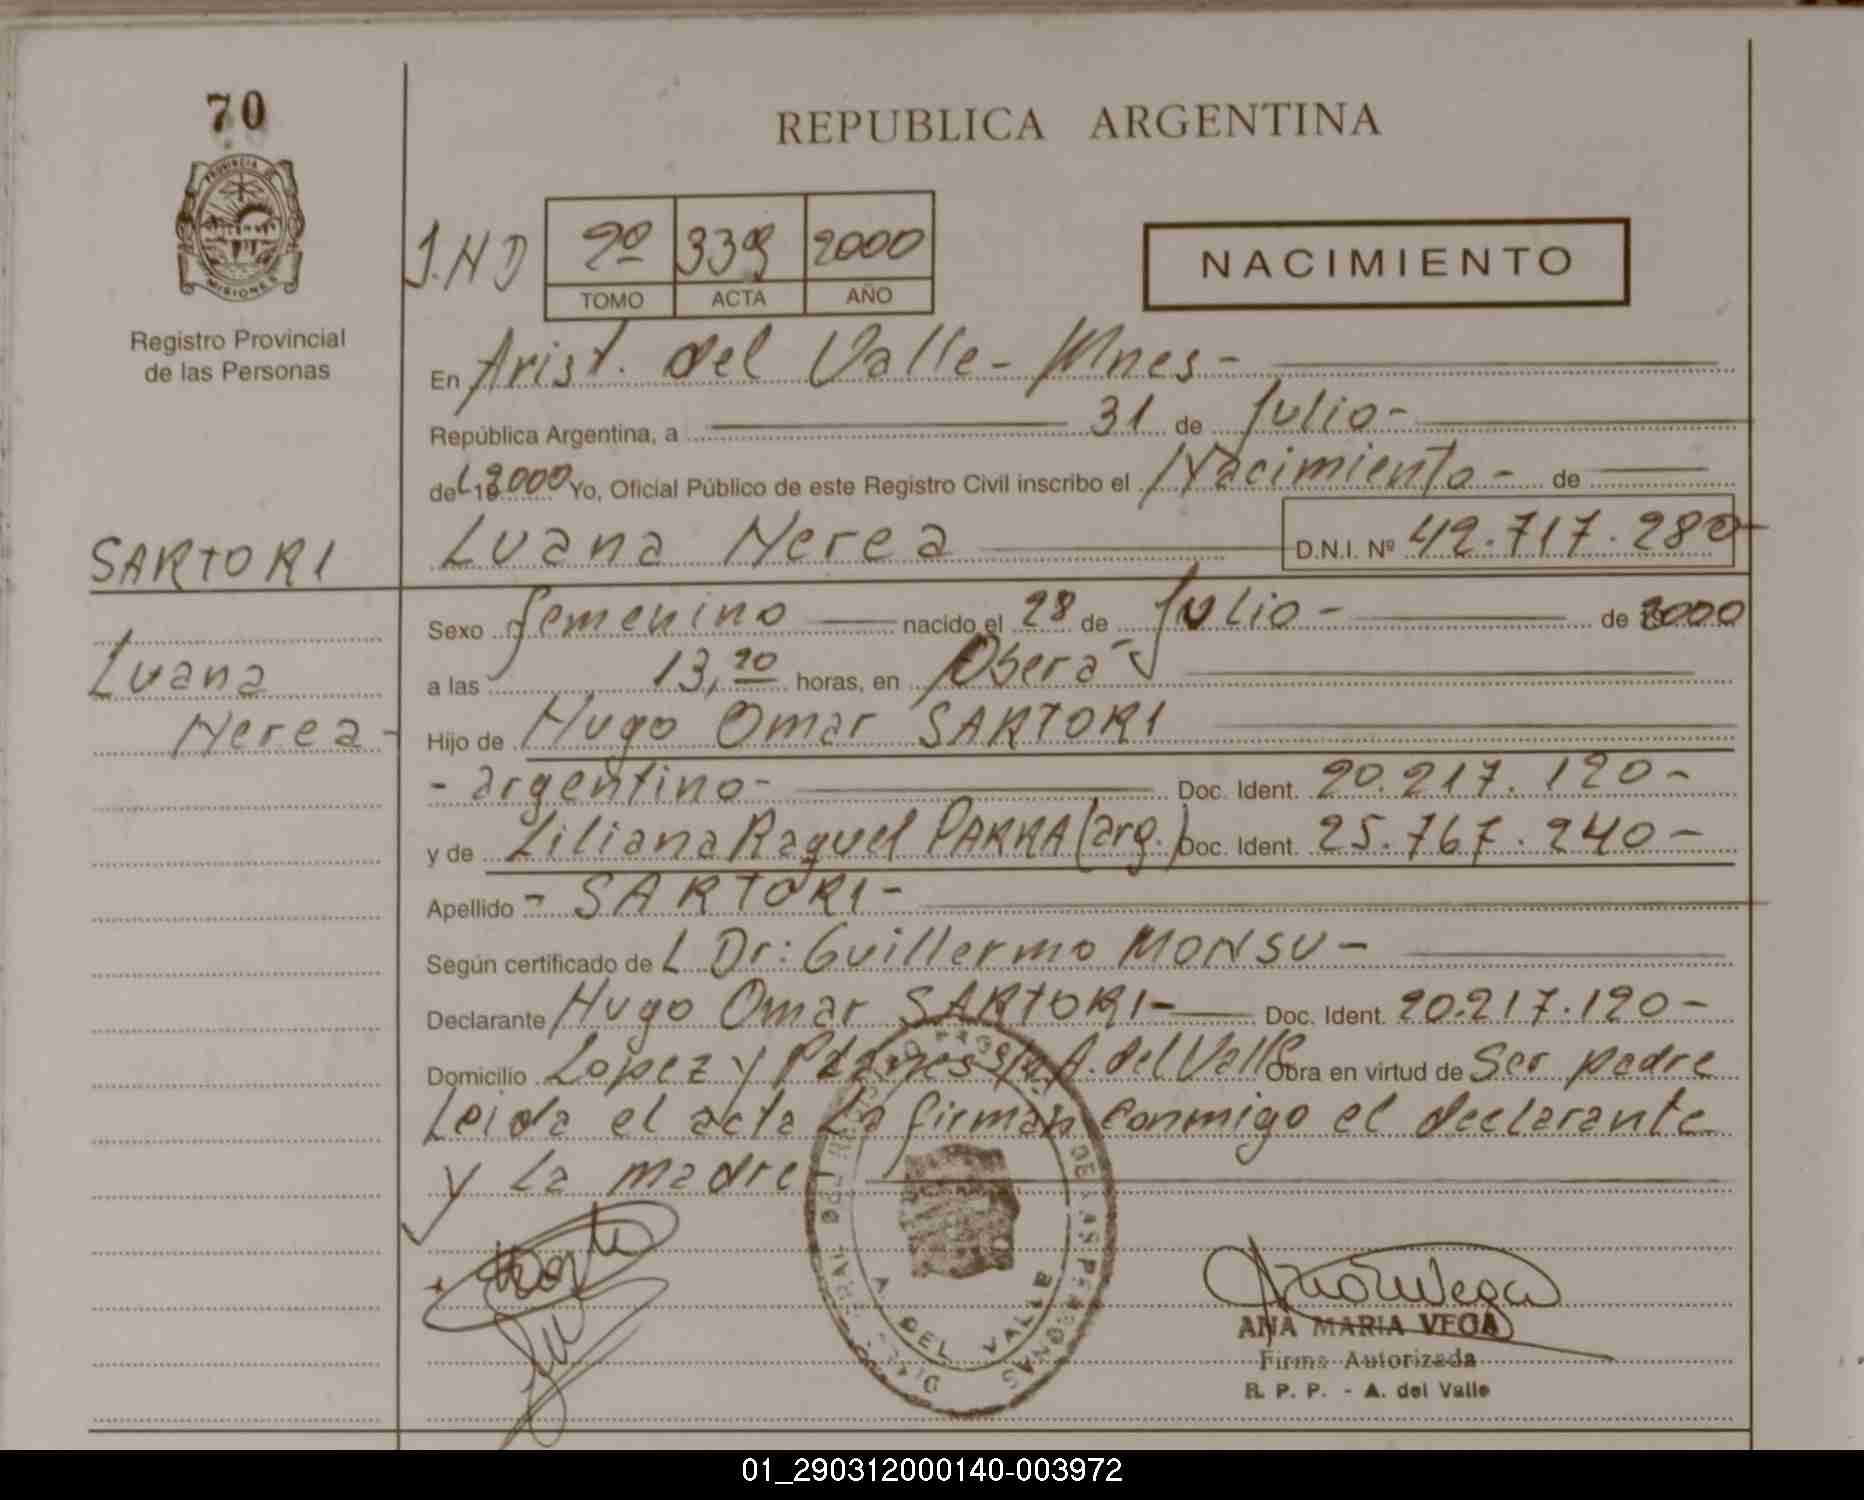 70
REPUBLICA ARGENTINA
PROVINCIA DE
MISIONES
Registro Provincial
de las Personas
J.N D
2º 339 2000
TOMO ACTA AÑO
NACIMIENTO
En Arist. del Valle - Mnes -
República Argentina, a 31 de Julio -
del 2000 Yo, Oficial Público de este Registro Civil inscribo el Nacimiento - de
SARTORI
Luana Nerea D.N.I. Nº 42.717.280-
Sexo femenino nacido el 28 de Julio - de 2000
Luana
a las 13,20 horas, en Oberá -
Nerea -
Hijo de Hugo Omar SARTORI
- argentino - Doc. Ident. 20.217.120 -
y de Liliana Raquel PARRA (arg.) Doc. Ident. 25.767.240 -
Apellido - SARTORI -
Según certificado del Dr: Guillermo MONSU -
Declarante Hugo Omar SARTORI - Doc. Ident. 20.217.120 -
Domicilio Lopez y Planes s/n A. del Valle Obra en virtud de Ser padre
Leida el acta la firman conmigo el declarante
y la madre
DE LAS PERSONAS
A. DEL VALLE
ANA MARIA VEGA
Firma Autorizada
R. P. P. - A. del Valle
01_290312000140-003972